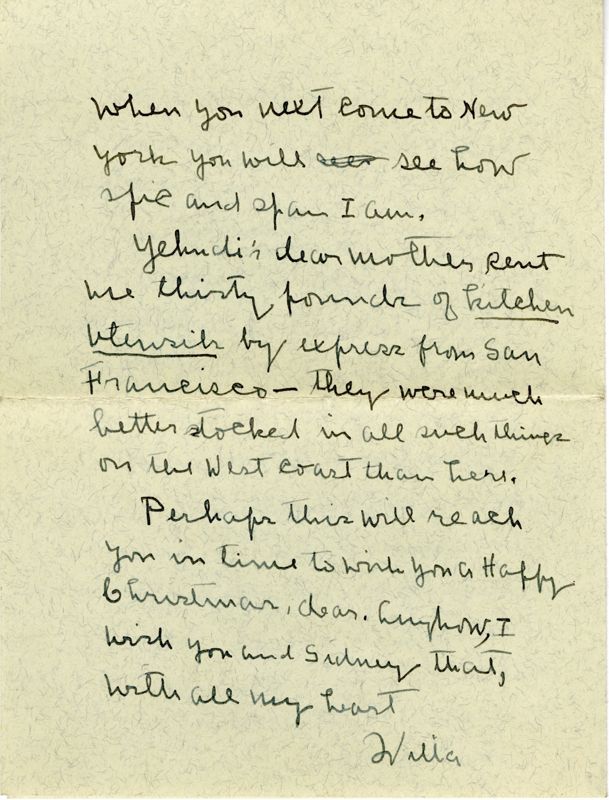 When you next come to New
York you will see see how
spic and span I am.
Yehudi's dear mother sent
me thirty pounds of kitchen
utensils by express from San
Francisco — they were much
better stocked in all such things
on the West Coast than here.
Perhaps this will reach
you in time to wish you a Happy
Christmas, dear. Anyhow, I
wish you and Sidney that,
with all my heart
Willa